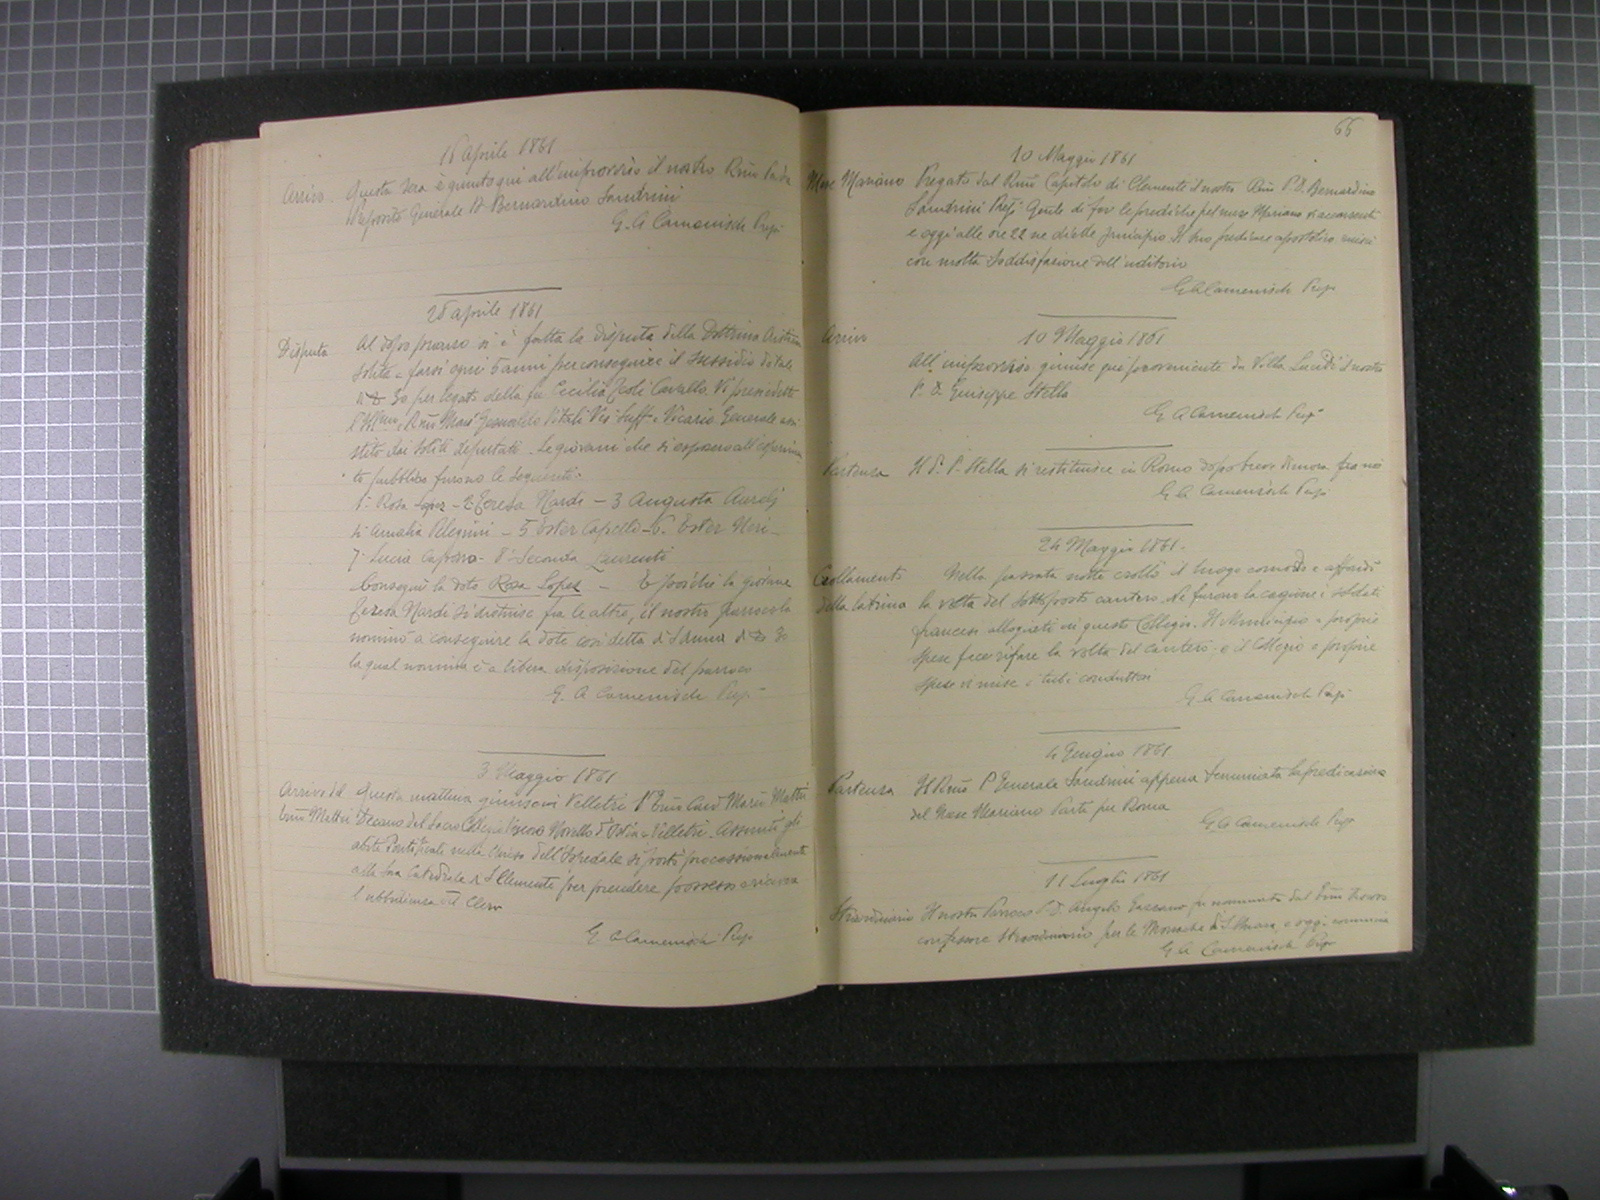 16 Aprile 1861
Arrivo. Questa sera è giunto qui all'improvviso il nostro Rmo Padre
Preposito Generale D. Bernardino Sandrini
G. A Camenisch Prep.
25 Aprile 1861
Disputa Al dopo pranzo si è fatta la disputa della Dottrina Cristiana
solita a farsi ogni 5 anni per conseguire il sussidio dotale
di 30 per legato della fu Cecilia Carcello. Vi presiedette
Rmo Gesualdo Vitali Vicario Generale
stito dai soliti deputati. Le giovani che si esposero all'esperimen
to pubblico furono le seguenti.
1 Rosa Lopez - 2 Teresa Nardi - 3 Augusta Aurelj
4 Amalia - 5 Ester Capello - 6. Ester Neri -
7 Lucia - 8 Seconda Laurenti
Conseguì la dote Rosa Lopez - E poichè la giovane
Teresa Nardi si distinse fra le altre, il nostro parroco la
nominò a conseguire la dote così detta di S Anna di 30
la qual nomina è a libera disposizione del parroco
G. A Camenisch Prep
3 Maggio 1861
Arrivo del Questa mattina giunse in Velletri l'Emo Card Mario Mattei
Emo Mattei Decano del Sacro Collegio Vescovo Novello d'Ostia e Velletri. Assunti gli
abiti Pontificali nella Chiesa dell'Ospedale si portò processionalmente
alla sua Catedrale di S Clemente per prendere possesso e ricevere
l'ubbidienza del Clero
G A Camenisch Prep
66
10 Maggio 1861
Mese Mariano Pregato dal Rmo Capitolo di Clemente il nostro Rmo P. D. Bernardino
Sandrini Prep. Gnle di far le prediche pel mese Mariano vi acconsentì
e oggi alle ore 22 ne diede principio. Il suo predicare apostolico
con molta soddisfazione dell'uditorio
G A Camenisch Prep
10 Maggio 1861
Arrivo
All'improvviso giunse qui proveniente da Villa Lucidi il nostro
P. D. Giuseppe Stella
G A Camenisch Prep
Partenza Il D. P. Stella si restituisce in Roma dopo breve dimora fra noi
G A Camenisch Prep
24 Maggio 1861.
Crollamento Nella passata notte crollò il luogo comodo e affondò
della latrina la volta del sottoposto cantero. Ne furono la cagione i soldati
francesi alloggiati in questo Collegio. Il Municipio a proprie
spese fece rifare la volta del cantero e il Collegio a proprie
spese vi mise i tubi conduttori
G A Camenisch Prep
4 Giugno 1861
Partenza Il Rmo P Generale Sandrini appena terminata la predicazione
del Mese Mariano partì per Roma
G A Camenisch Prep
11 Luglio 1861
Straordinario Il nostro Parroco P. D. Angelo fu nominato dal Emo Vescovo
confessore straordinario per le Monache di S. Chiara, e oggi comincia
G A Camenisch Prep